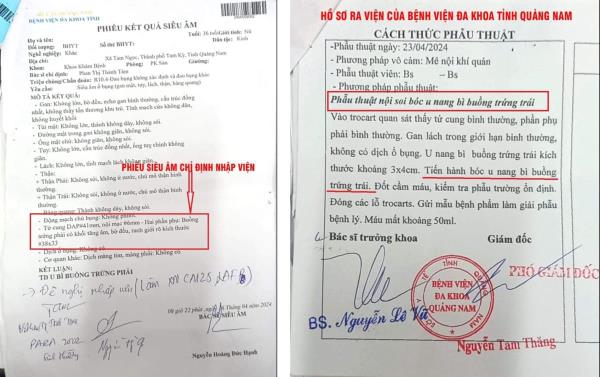 BỆNH VIỆN ĐA KHOA TỈNH
PHIẾU KẾT QUẢ SIÊU ÂM
Họ và tên:
Tuổi: 36 tuổi Giới tính: Nữ
Đối tượng: BHYT
Số thẻ BHYT:
Dân tộc: Kinh
Nghề nghiệp: Khác
Địa chỉ: Xã Tam Ngọc, Thành phố Tam Kỳ, Tỉnh Quảng Nam
Khoa: Khoa Khám Bệnh
Phòng: PK Sản
Bác sĩ chỉ định: Phan Thị Thành Tâm
Triệu chứng/Chẩn đoán: R10.4-Đau bụng không xác định và đau bụng khác
Yêu cầu: Siêu âm ổ bụng (gan mật, tụy, lách, thận, bàng quang)
MÔ TẢ KẾT QUẢ:
- Gan: Không lớn, bờ đều, nhu mô gan bình thường, cấu trúc đồng
nhất, không thấy tổn thương khu trú. Tĩnh mạch cửa không dãn,
không huyết khối
- Túi mật: Không lớn, thành không dày, không sỏi.
- Đường mật trong gan không giãn, không sỏi.
- Ống mật chủ: không giãn, không sỏi.
- Tụy: Không lớn, cấu trúc đồng nhất, ống tụy chính không
giãn.
- Lách: Không lớn, tĩnh mạch lách không giãn.
- Thận:
+ Thận Phải: Không sỏi, không ứ nước, chủ mô thận bình
thường.
+ Thận Trái: Không sỏi, không ứ nước, chủ mô thận bình
thường.
- Bàng quang: Thành không dày, không sỏi.
PHIẾU SIÊU ÂM CHỈ ĐỊNH NHẬP VIỆN
- Động mạch chủ bụng: Không phình.
- Tử cung DAP#41mm, nội mạc #6mm - Hai phần phụ: Buồng
trứng phải có khối tăng âm, bờ đều, ranh giới rõ kích thước
#38x33
- Dịch ổ bụng: Không có
- Cơ quan khác: Dịch màng tim, màng phổi: Không có
KẾT LUẬN:
TD U BÌ BUỒNG TRỨNG PHẢI
Đề nghị nhập viện
00 giờ 22 phút, ngày 16 tháng 04 năm 2024
BÁC SĨ SIÊU ÂM
PARA 2002
Nguyễn Hoàng Đức Hạnh
HỒ SƠ RA VIỆN CỦA BỆNH VIỆN ĐA KHOA TỈNH QUẢNG NAM
CÁCH THỨC PHẪU THUẬT
- Phẫu thuật ngày: 23/04/2024
- Phương pháp vô cảm: Mê nội khí quản
- Phẫu thuật viên: Bs – Bs
- Phương pháp phẫu thuật:
Phẫu thuật nội soi bóc u nang bì buồng trứng trái
Vào trocart quan sát thấy tử cung bình thường, phần phụ
phải bình thường. Gan lách trong giới hạn bình thường,
không có dịch ổ bụng. U nang bì buồng trứng trái kích
thước khoảng 3x4cm. Tiến hành bóc u nang bì buồng
trứng trái. Đốt cầm máu, kiểm tra phẫu trường ổn định.
Đóng các lỗ trocarts. Gửi mẫu bệnh phẩm làm giải phẫu
bệnh lý. Máu mất khoảng 50ml.
Bác sĩ trưởng khoa
Giám đốc
PHÓ GIÁM ĐỐC
BỆNH VIỆN
ĐA KHOA
QUẢNG NAM
BS. Nguyễn Lê Vũ
Nguyễn Tam Thăng